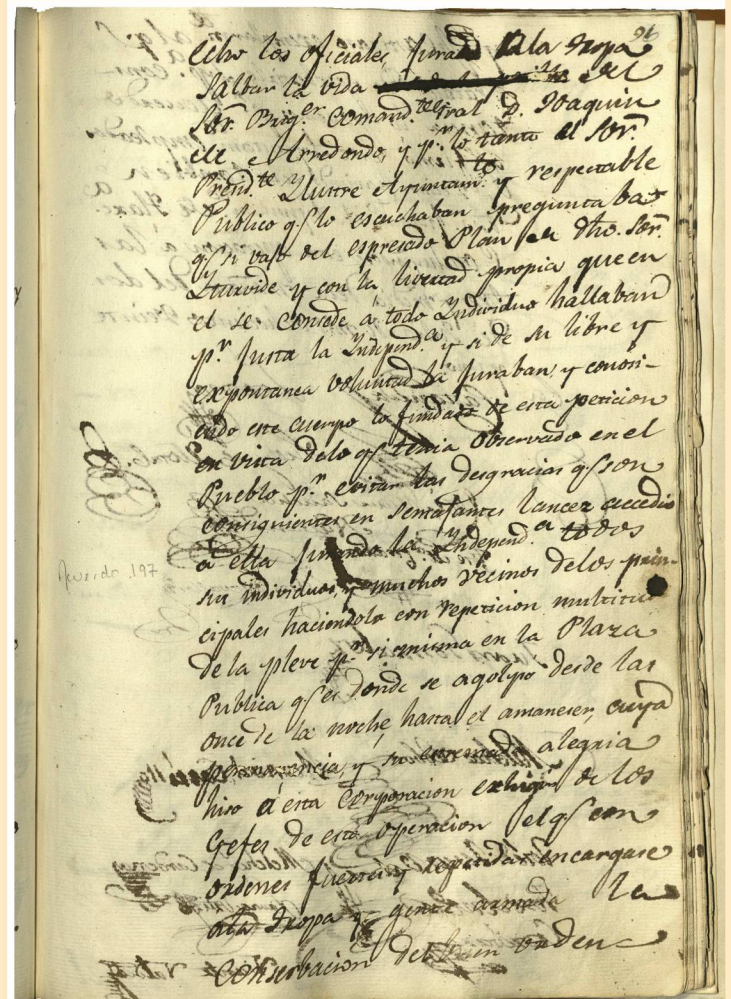 96
echo los oficiales jurado a la tropa
Salbar la vida del
Sor. Briger. Comandte. gral D. Joaquin
de Arredondo, y pr. lo tanto el Sor.
Presidte. Ylustre Ayuntam.to y respectable
Publico qe. lo escuchaban preguntaba
qe. si vaso del espresado Plan de dho. Sor.
Yturvide y con la livertad propia que en
el se consede a todo Yndividuo hallaban
pr. justa la Yndepend.a y si de su libre y
expontanea voluntad la juraban, y conosi-
endo este cuerpo lo fundado de esta peticion
en vista de lo qe. tenia observado en el
Pueblo pr. evitar las desgracias qe. son
consiguientes en semejantes lances accedio
a ella jurando la Yndepend.a todos
sus individuos, y muchos vecinos de los prin-
cipales haciendola con repeticion multitud
de la pleve pr. si misma en la Plaza
Publica qe. es donde se agolpo desde las
once de la noche, hasta el amaneser, cuya
permanencia, y su estremada alegria
hiso a esta Corporacion exhigir de los
Gefes de esta operacion el qe. con
ordenes fuertes y repetidas encargase
a la tropa y gente armada la
Conserbacion del buen orden
Acuerdo. 197